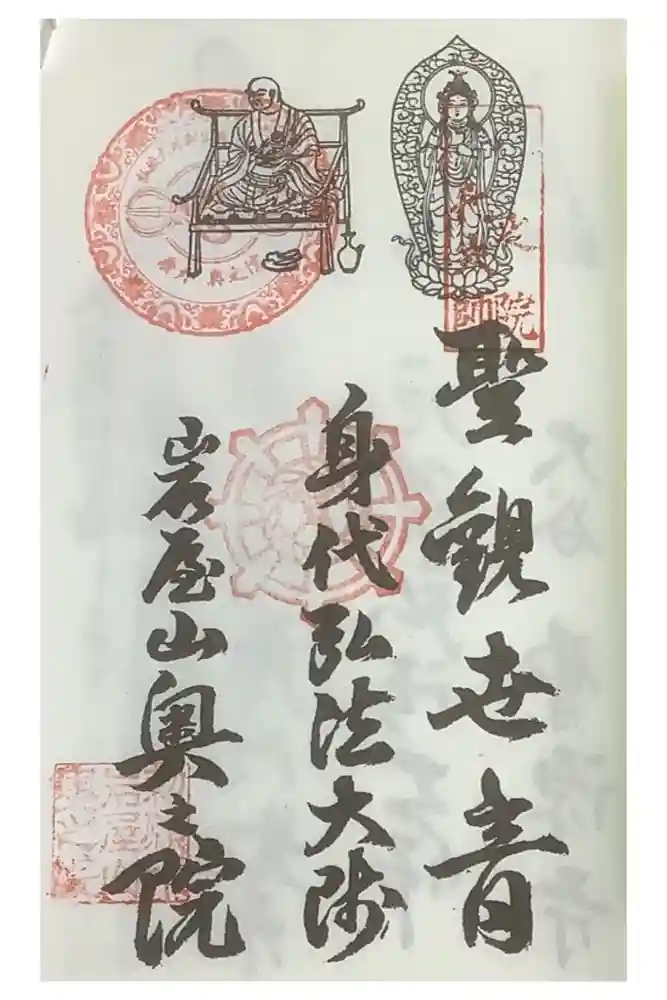 聖観世音
身代弘法大師
岩屋山奥之院
奥之院